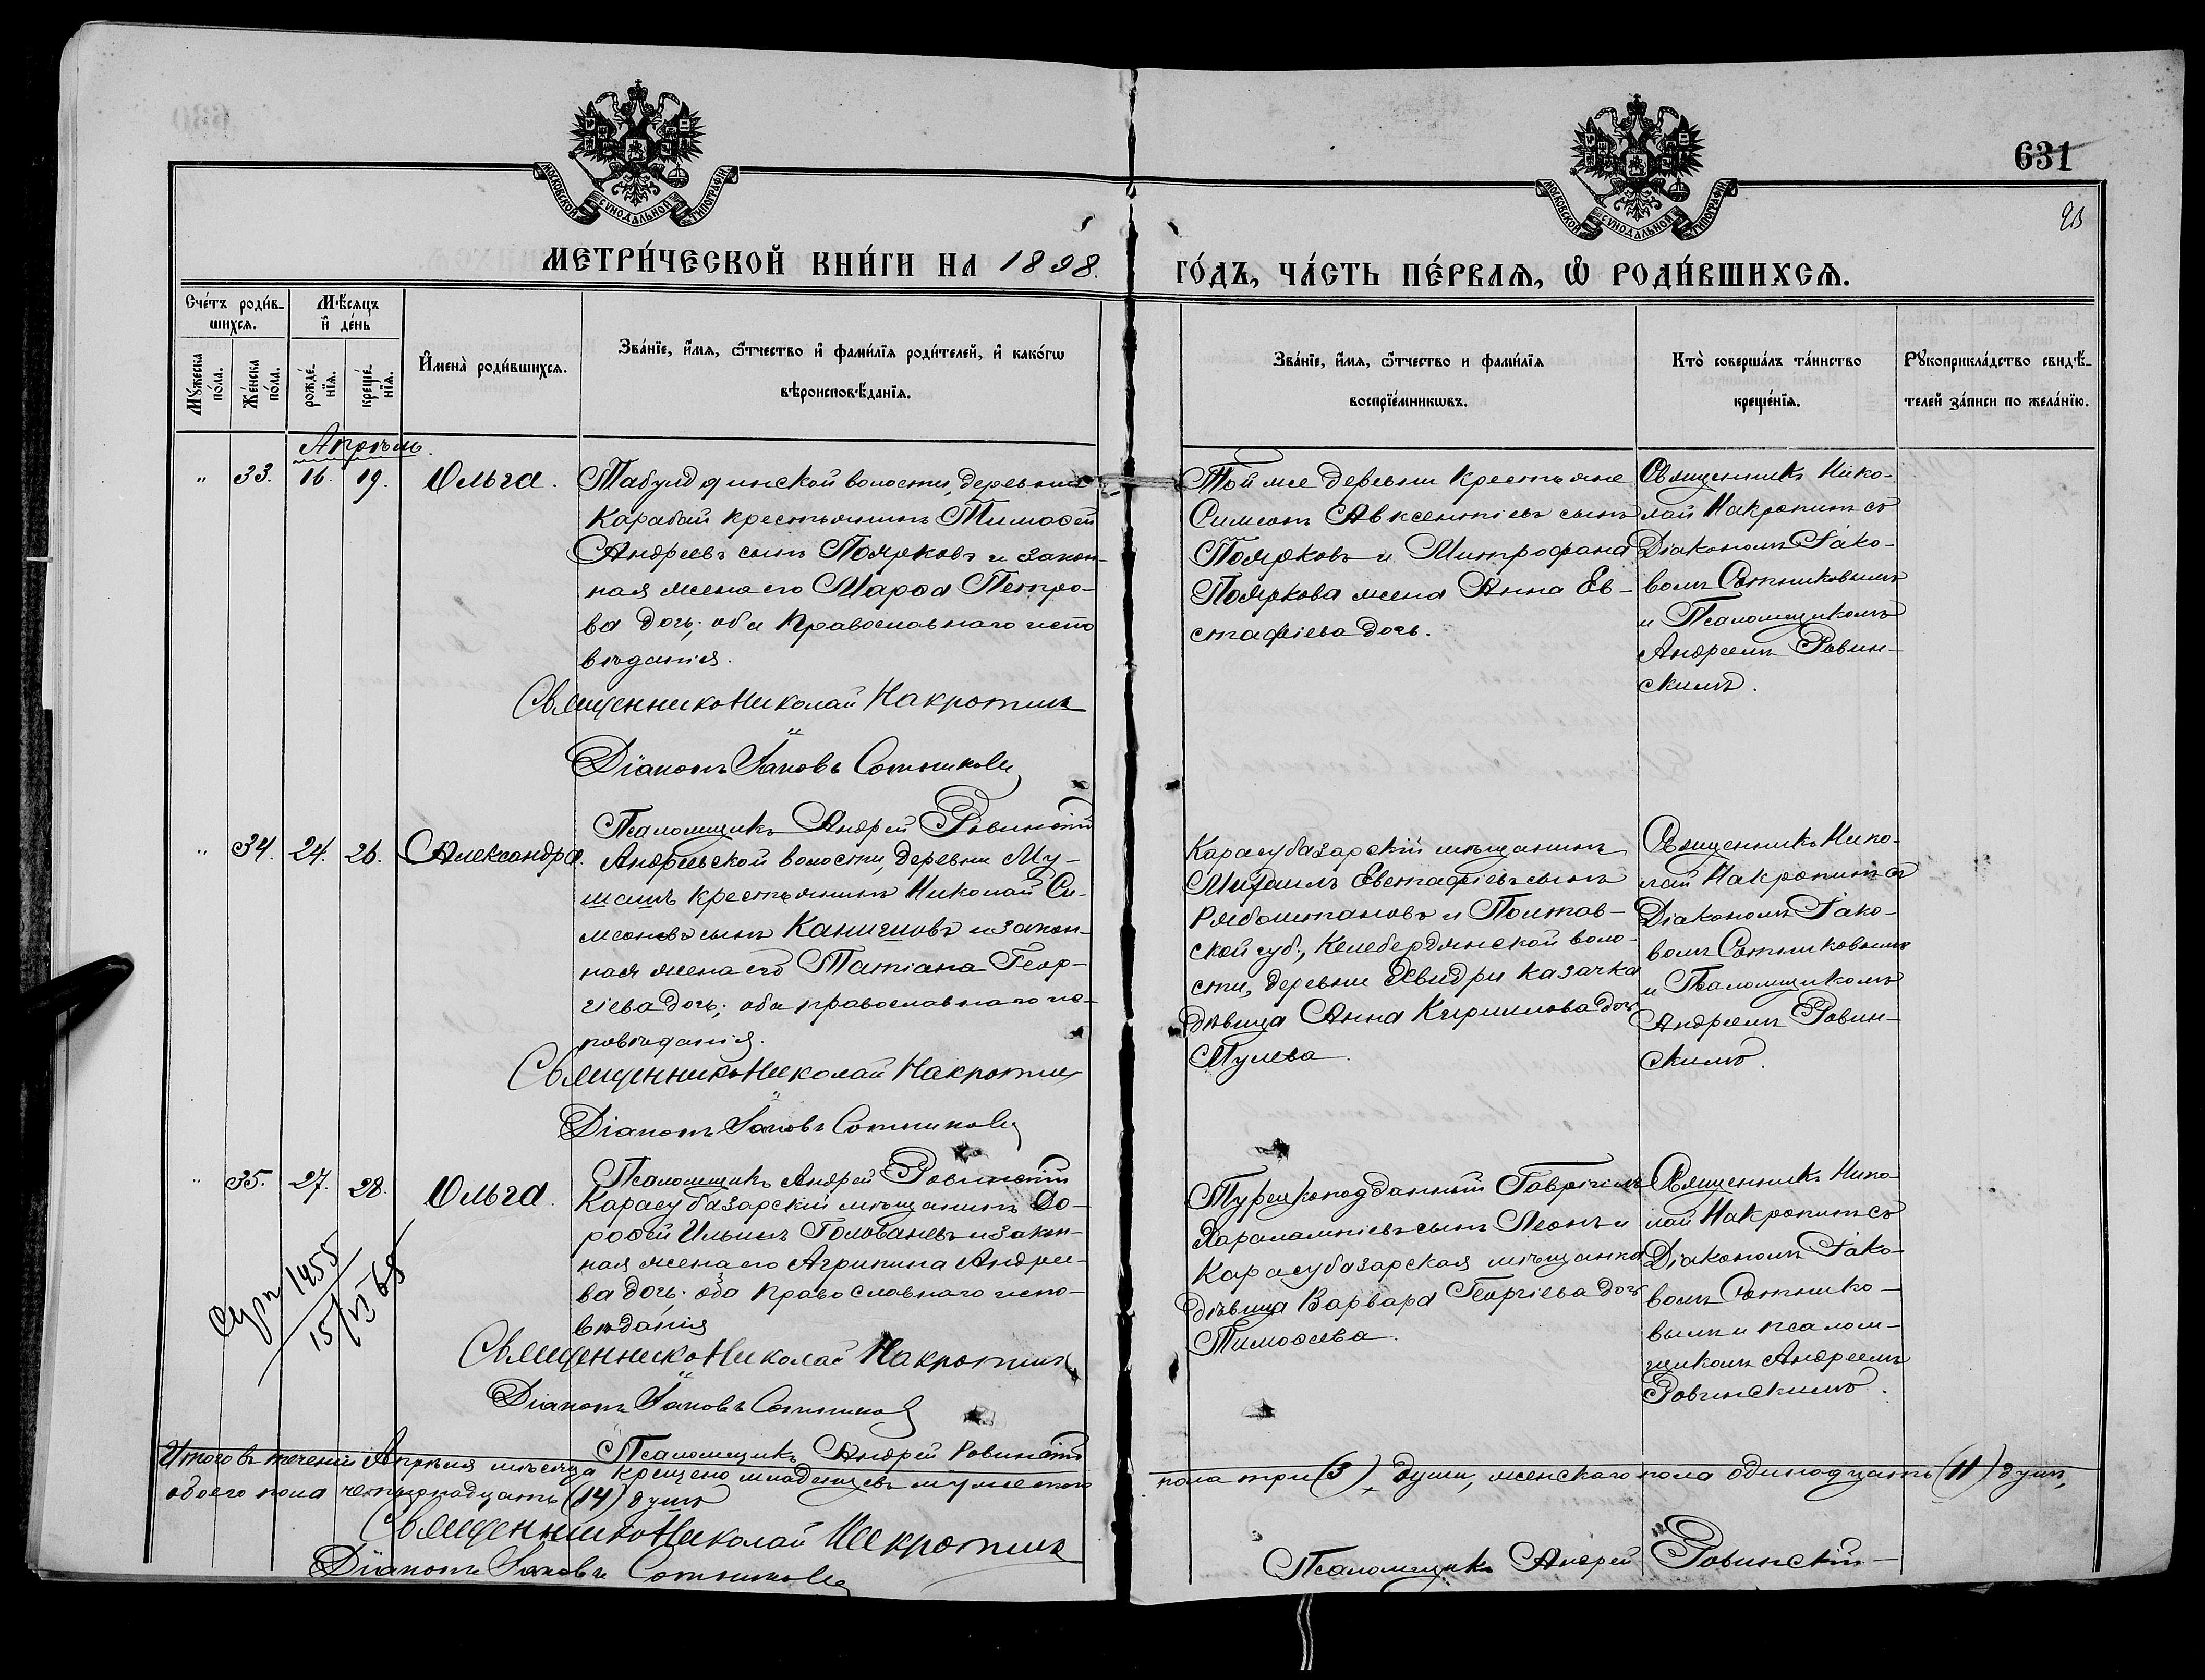 631
МОСКОВСКОЙ СѴНОДАЛЬНОЙ ТИПОГРАФІИ
МОСКОВСКОЙ СѴНОДАЛЬНОЙ ТИПОГРАФІИ
МЕТРИ́ЧЕСКОЙ КНИ́ГИ НА 1898.
ГО́ДЪ, ЧА́СТЬ ПЕ́РВАѦ, Ѡ҆ РОДИ́ВШИХСѦ.
Сче́тъ роди́в-
шихсѧ.
Мѣ́сѧцъ
и҆ де́нь
Мꙋ́жеска
по́ла.
Же́нска
по́ла.
рожде́-
нїѧ.
креще́-
нїѧ.
И҆мена̀ роди́вшихсѧ.
Зва́нїе, и҆́мѧ, ѻ҆́тчество и҆ фами́лїѧ роди́телей, и҆ како́гѡ
вѣроисповѣ́данїѧ.
Зва́нїе, и҆́мѧ, ѻ҆́тчество и фами́лїѧ
воспрїе́мникѡвъ.
Кто̀ соверша́лъ та́инство
креще́нїѧ.
Рꙋкоприкла́дство свидѣ́-
телей за́писи по жела́нїю.
Апрѣль.
" 33. 16. 19. Ольга.
Табулдинской волости, деревни
Карабай крестьянинъ Тимоѳей
Андреевъ сынъ Поярковъ и закон-
ная жена его Марѳа Петро-
ва дочь; оба Православнаго испо
вѣданія.
Священникъ Николай Накропинъ
Діаконъ Іаковъ Сотниковъ
Псаломщикъ Андрей Ровинскій
Той же деревни крестьяне
Симеонъ Авксентіевъ сынъ
Поярковъ и Митрофана
Пояркова жена Анна Ев-
стафіева дочь.
Священникъ Нико-
лай Накропинъ съ
Діакономъ Іако-
вомъ Сотниковымъ
и Псаломщикомъ
Андреемъ Ровин-
скимъ.
" 34. 24. 26. Александра.
Андреевской волости, деревни Му-
шашъ крестьянинъ Николай Си-
меоновъ сынъ Канишовъ и закон-
ная жена его Татіана Геор-
гіева дочь; оба православнаго ис-
повѣданія.
Священникъ Николай Накропинъ
Діаконъ Іаковъ Сотниковъ
Псаломщикъ Андрей Ровинскій
Карасубазарскій мѣщанинъ
Михаилъ Евстафіевъ сынъ
Рябоштановъ и Полтав-
ской губ., Келебердянской воло-
сти, деревни казачка
дѣвица Анна Кириллова дочь
Священникъ Нико-
лай Накропинъ съ
Діакономъ Іако-
вомъ Сотниковымъ
и Псаломщикомъ
Андреемъ Ровин-
скимъ.
" 35. 27. 28. Ольга.
Карасубазарскій мѣщанинъ До-
роѳей Ильинъ Голованевъ и закон-
ная жена его Агрипина Андрее-
ва дочь; оба Православнаго испо-
вѣданія
Священникъ Николай Накропинъ
Діаконъ Іаковъ Сотниковъ
Псаломщикъ Андрей Ровинскій
Турецкоподданный Гавріилъ
Харалампіевъ сынъ Леонъ и
Карасубазарская мѣщанка
дѣвица Варвара Георгіева дочь
Тимоѳеева.
Священникъ Нико-
лай Накропинъ съ
Діакономъ Іако-
вомъ Сотнико-
вымъ и псалом-
щикомъ Андреемъ
Ровинскимъ.
1455
15/VI 65
Итого въ теченіи Апрѣля мѣсяца крещено младенцевъ мужескаго пола три (3) души, женскаго пола одиннадцать (11) душъ,
обоего пола четырнадцать (14) душъ
Священникъ Николай Накропинъ
Діаконъ Іаковъ Сотниковъ
Псаломщикъ Андрей Ровинскій